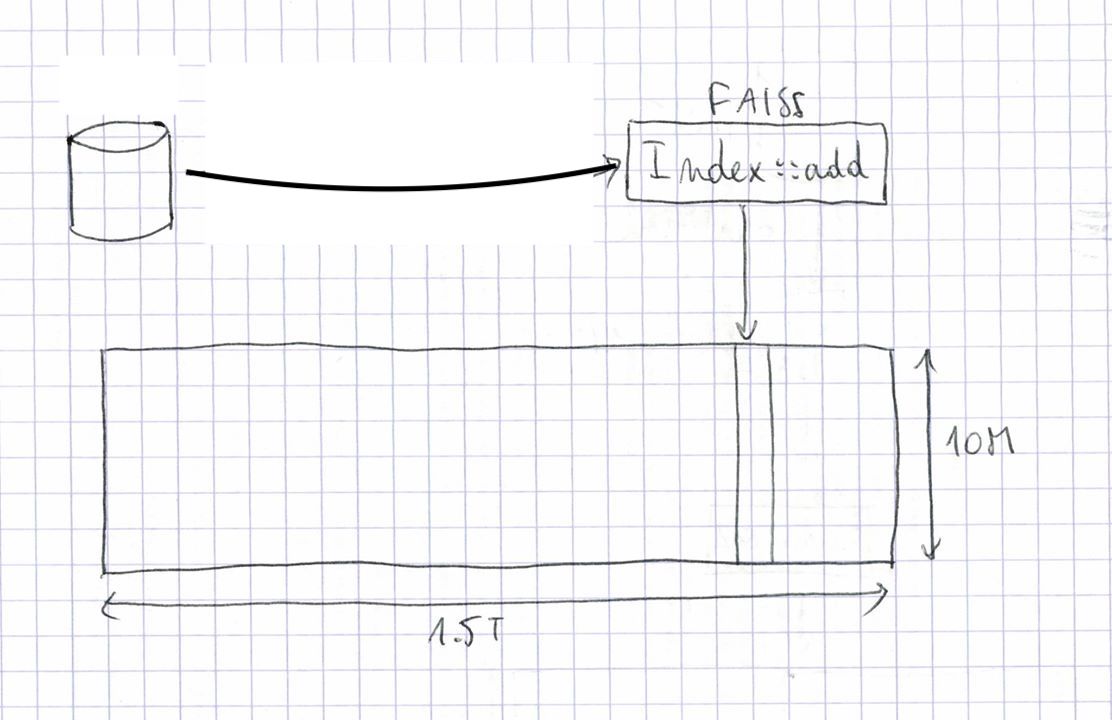 FAISS
Index::add
10M
1.5T